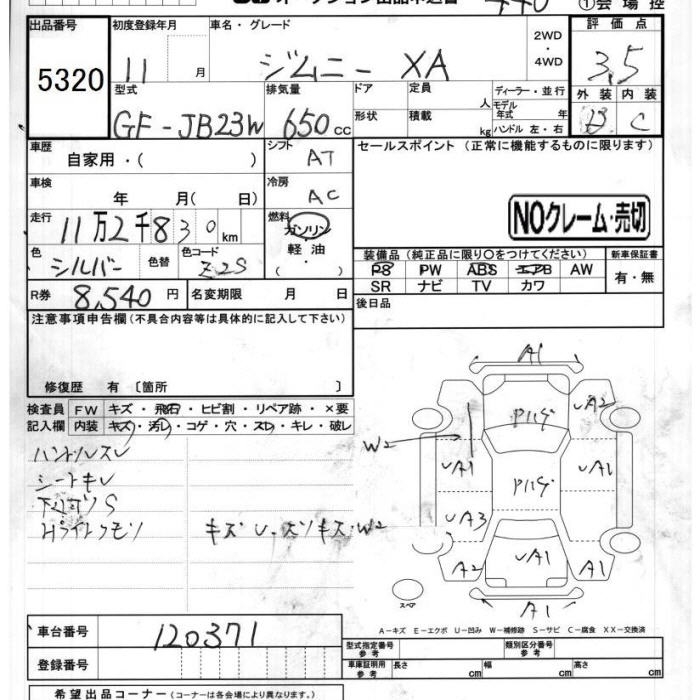 ①会場控
出品番号 初度登録年月 車名・グレード 2WD・4WD 評価点
5320 11 月 ジムニー XA 3.5
型式 排気量 ドア形状 定員 人 積載 kg ディーラー・並行 モデル年式 年 ハンドル 左・右 外装 内装
GF-JB23W 650 cc B C
車歴 自家用・( ) シフト AT セールスポイント (正常に機能するものに限ります)
車検 年 月( 日) 冷房 AC
走行 11万2千830 km 燃料 ガソリン 軽油 ( ・ ) NOクレーム・売切
色 シルバー 色替 色コード Z2S
装備品 (純正品に限り○をつけてください) 新車保証書
PS PW ABS エアB AW 有・無
SR ナビ TV カワ
R券 8,540 円 名変期限 月 日 後日品
注意事項申告欄 (不具合内容等は具体的に記入して下さい)
修復歴 有 〔箇所 〕
検査員 FW キズ・飛石・ヒビ割・リペア跡・×要
記入欄 内装 キズ・汚レ・コゲ・穴・スレ・キレ・破レ
ハンドルスレ
シートキレ
キズU・スリキズ・W2
A1
A2
Pハゲ
W2
A1
A1
Pハゲ
A3
A1
A2
A1
A1
スペア
A-キズ E-エクボ U-凹み W-補修跡 S-サビ C-腐食 XX-交換済
車台番号 120371
型式指定番号 参考 類別区分番号 参考
登録番号 車庫証明用 参考 長さ cm 幅 cm 高さ cm
希望出品コーナー (コーナーは各会場により異なります。)